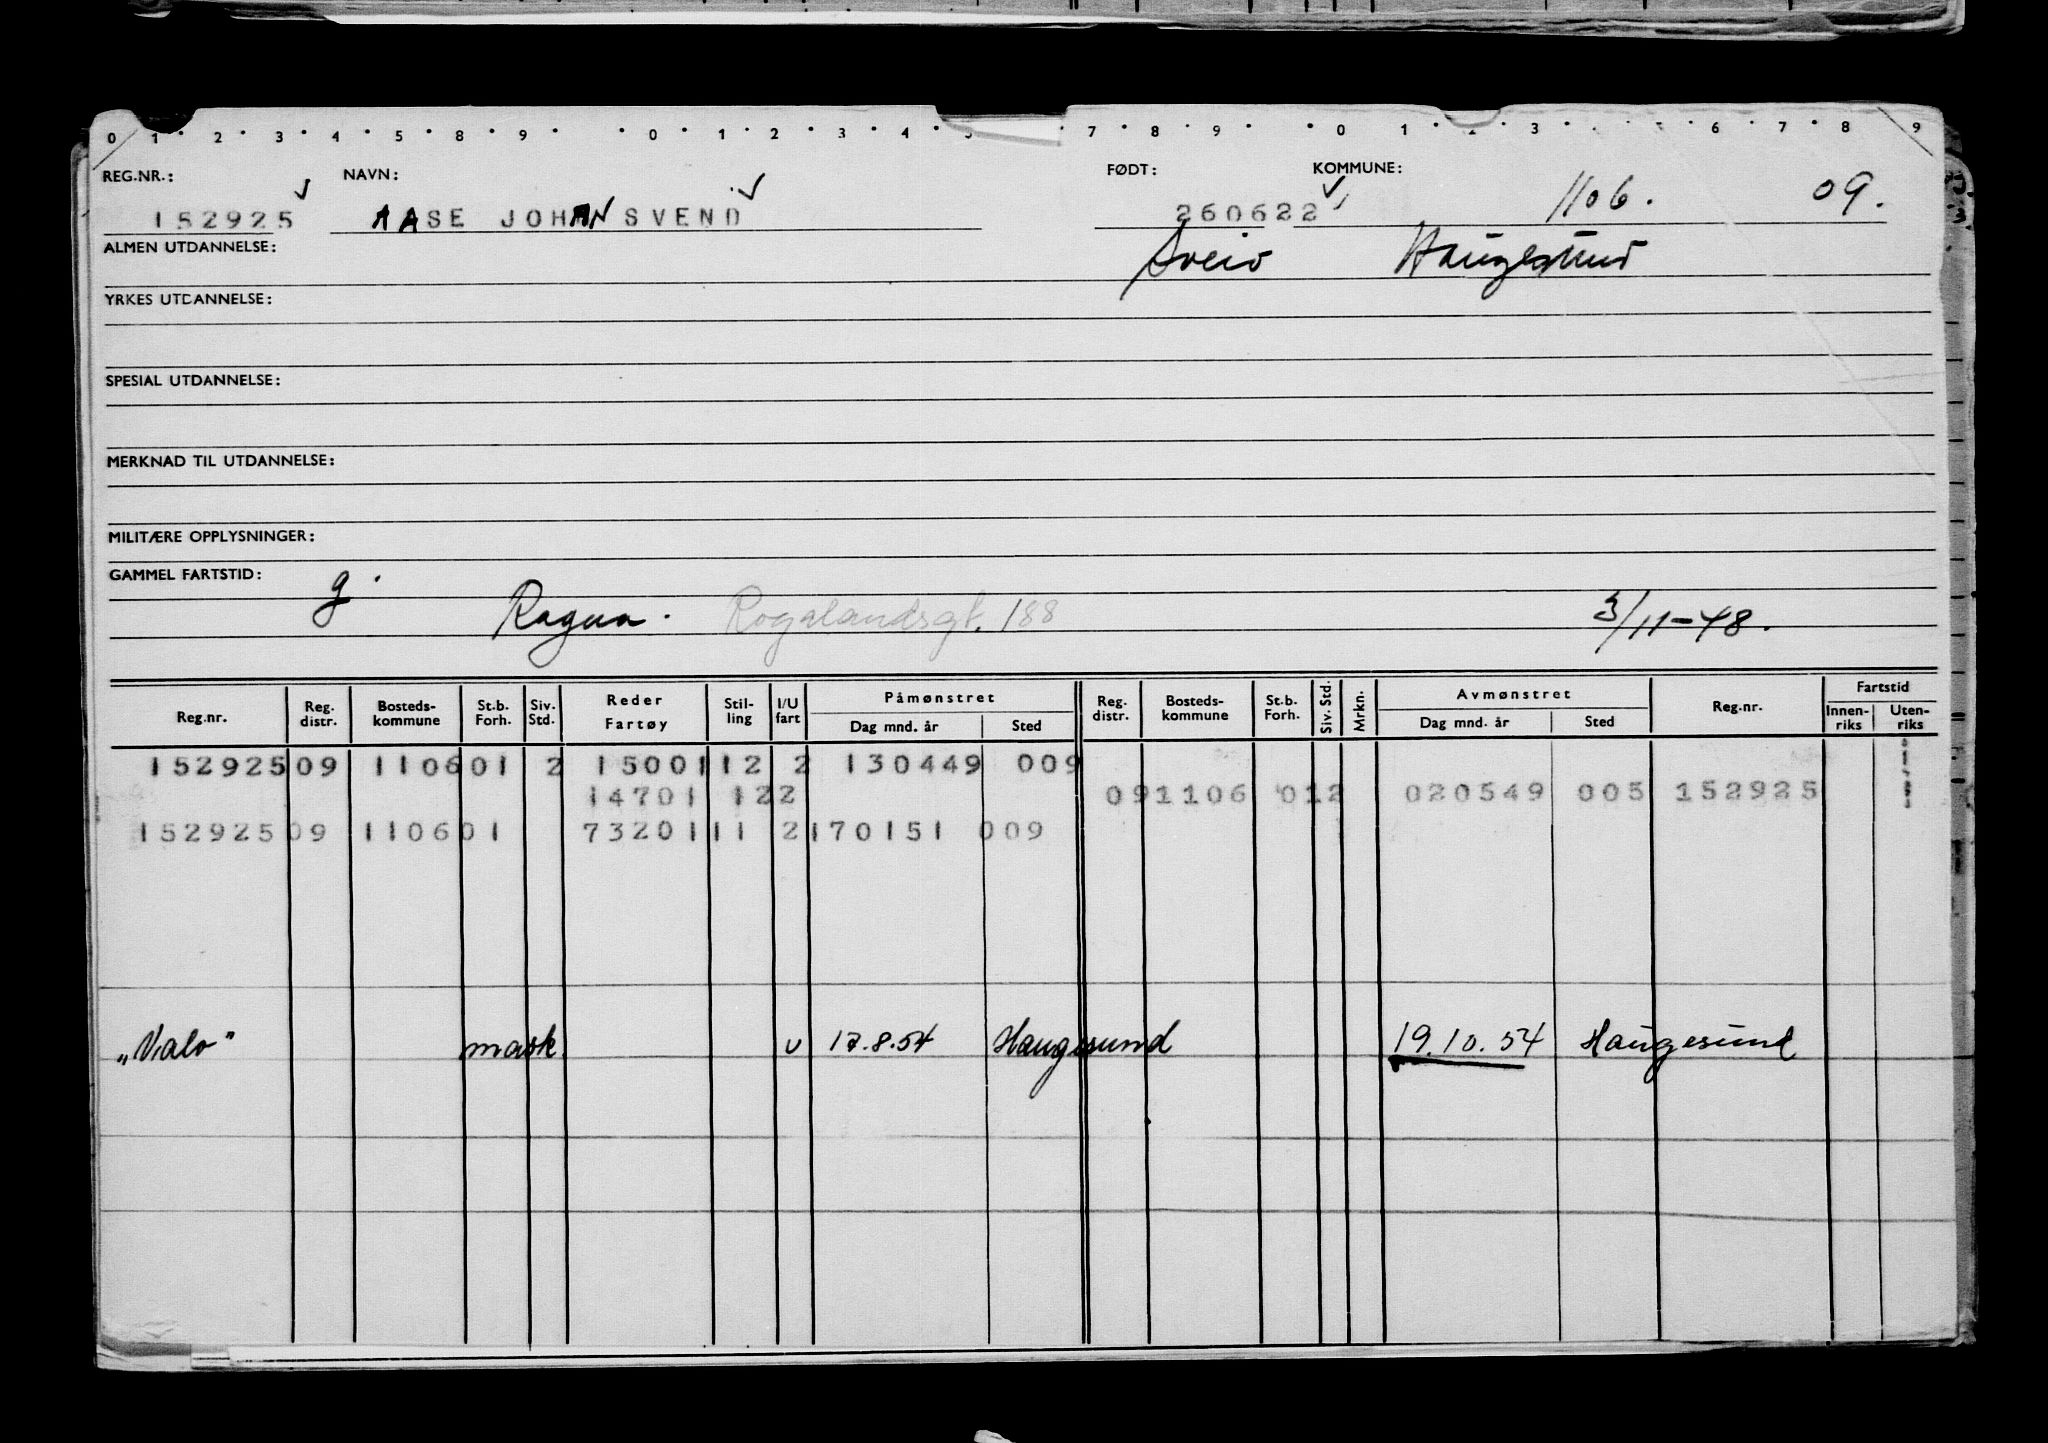 0 1 2 3 4 5 8 9 0 1 2 3 4 5 7 8 9 0 1 2 3 6 7 8 9
REG.NR.: NAVN: FØDT: KOMMUNE:
152925 AASE JOHAN SVEND 260622 1106. 09.
ALMEN UTDANNELSE: Sveio Haugesund
YRKES UTDANNELSE:
SPESIAL UTDANNELSE:
MERKNAD TIL UTDANNELSE:
MILITÆRE OPPLYSNINGER:
GAMMEL FARTSTID: g.
Ragna. Rogalandsgt. 188 3/11-48.
Reg.nr. Reg. distr. Bosteds-kommune St.b. Forh. Siv. Std. Reder Fartøy Stil-ling I/U fart Påmønstret Dag mnd. år Sted Reg. distr. Bosteds-kommune St.b. Forh. Siv. Std. Mrkn. Avmønstret Dag mnd. år Sted Reg.nr. Fartstid Innen-riks Uten-riks
152925 09 1106 01 2 15001 12 2 130449 009
14701 122 09 1106 01 2 020549 005 152925
152925 09 1106 01 73201 11 2 170151 009
„Valo" mask u 17.8.54 Haugesund 19.10.54 Haugesund